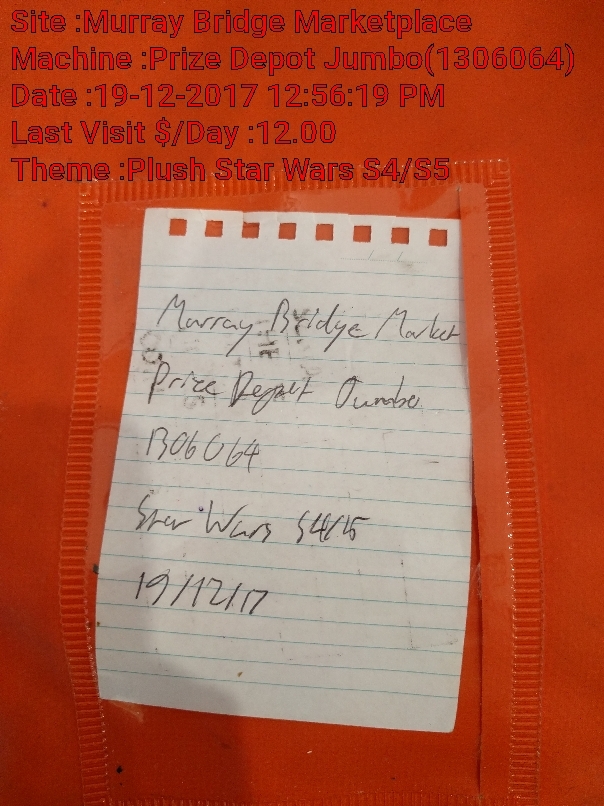 Site :Murray Bridge Marketplace
Machine :Prize Depot Jumbo(1306064)
Date :19-12-2017 12:56:19 PM
Last Visit $/Day :12.00
Theme :Plush Star Wars S4/S5
Murray Bridge Market
Prize Depot Jumbo
1306064
Star Wars S4/S5
19/12/17